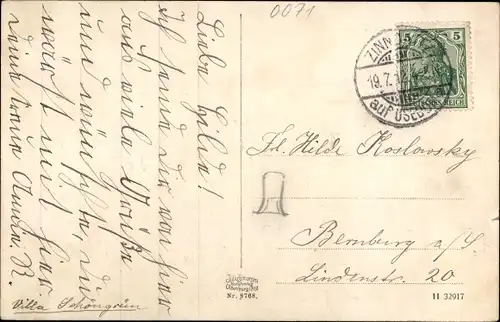 0071
Liebe Hilde!
Ich sende dir von hier
aus viele Grüße
und wünschte, du
wärst mit hier.
Deine
Villa Schöngrün
ZINN
19.7.1
auf USEDOM
5 5
REICH
Frl. Hilde Koslowsky
Bernburg a/S.
Lindenstr. 20
Nr. 8768.
11 32917